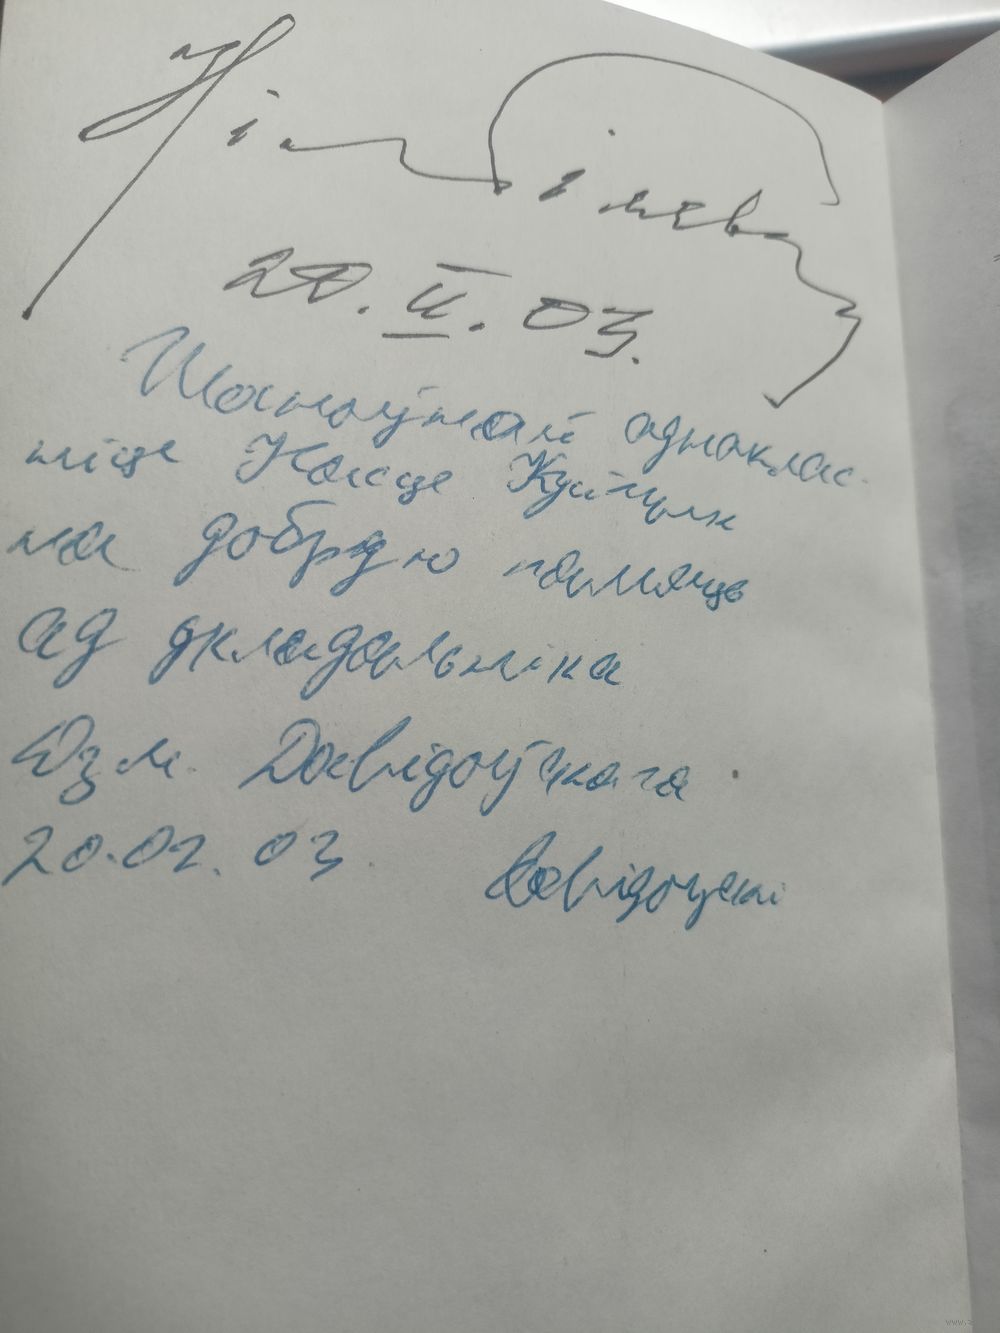 Ніл Гілевіч
20.II.03.
Шаноўнай аднаклас-
ніце Насце
на добрую памяць
ад укладальніка
Юзэ. Давідоўскага
20.02.03. Давідоўскі